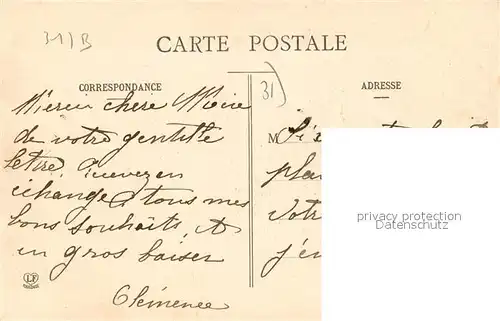 31)B
CARTE POSTALE
CORRESPONDANCE
ADRESSE
31)
Merci chere
de votre gentille
lettre. Recevez en
échange tous mes
bons souhaits, &
un gros baiser
Clémence
M
plai
Votr
j'en
privacy protection
Datenschutz
LF